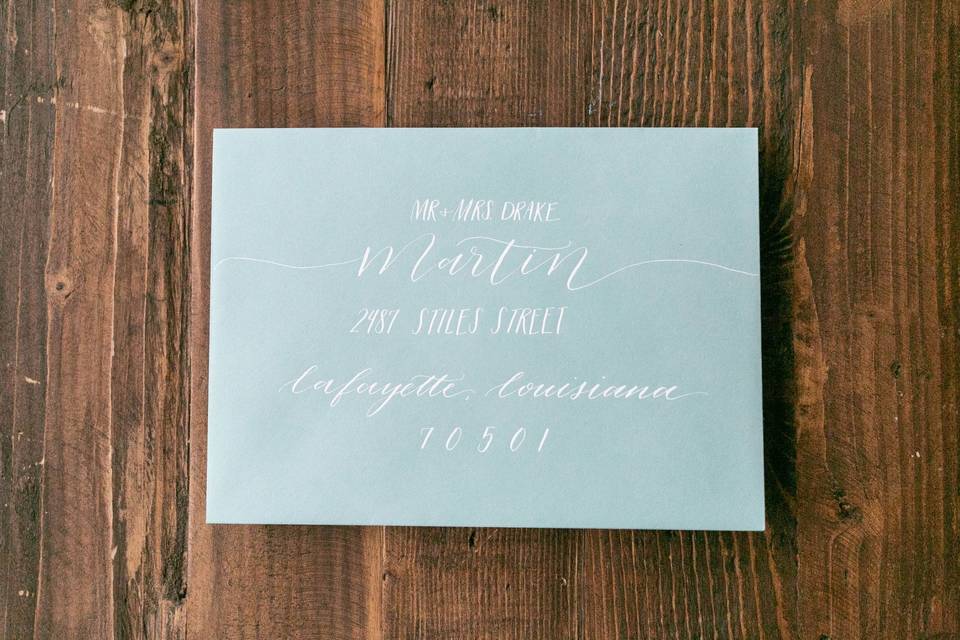 MR + MRS. DRAKE
Martin
2487 STILES STREET
Lafayette, Louisiana
70501